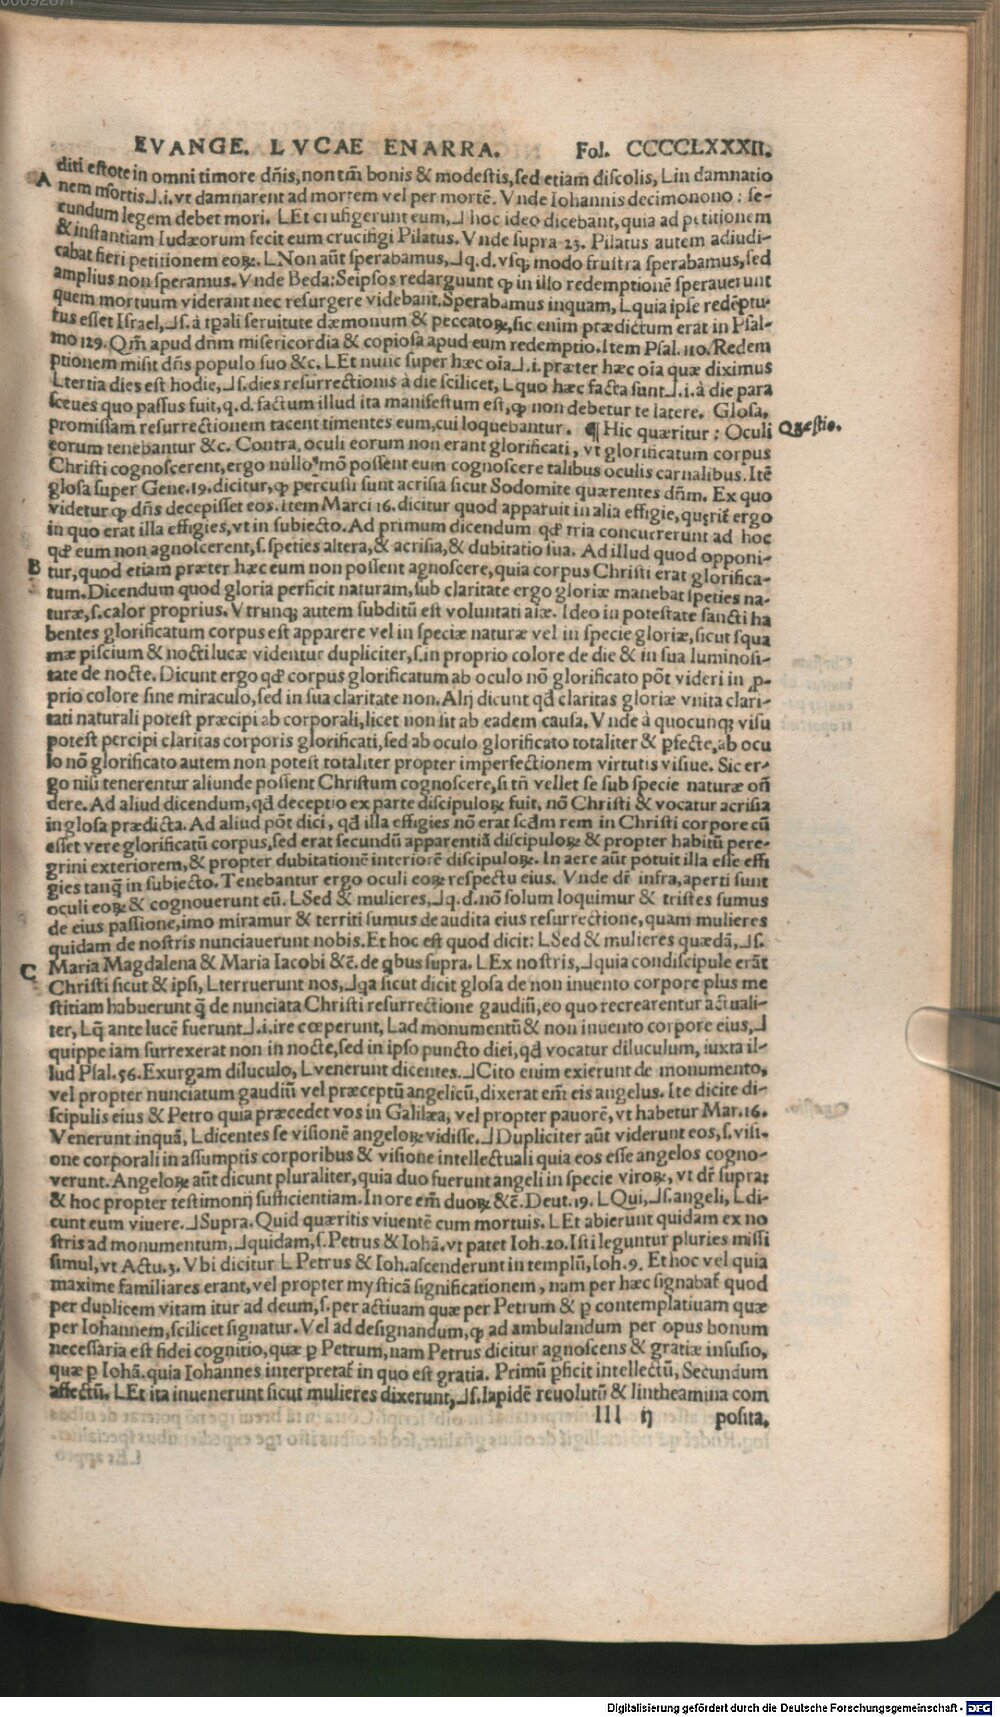 EVANGE. LVCAE ENARRA. Fol. CCCCCLXXXII.
diti estote in omni timore dn̄is, non tm̄ bonis & modestis, sed etiam discolis, Lin damnatio
A nem mortis.⅃.i. vt damnarent ad mortem vel per mortē. Vnde Iohannis decimonono: se-
cundum legem debet mori. LEt crucifigerunt eum,⅃ hoc ideo dicebant, quia ad petitionem
& instantiam Iudæorum fecit eum crucifigi Pilatus. Vnde supra 23. Pilatus autem adiudi-
cabat fieri petitionem eoꝝ. LNon aūt sperabamus,⅃q.d. vsq; modo frustra sperabamus, sed
amplius non speramus. Vnde Beda: Seipsos redarguunt ꝙ in illo redemptionē sperauerunt
quem mortuum viderant nec resurgere videbant. Sperabamus inquam, Lquia ipse redēptu-
rus esset Israel,⅃s. à tp̄ali seruitute dæmonum & peccatoꝝ, sic enim prædictum erat in Psal-
mo 129. Qm̄ apud dnm misericordia & copiosa apud eum redemptio. Item Psal. 110. Redem
ptionem misit dn̄s populo suo &c. LEt nunc super hæc oīa⅃.i. præter hæc oīa quæ diximus
Ltertia dies est hodie,⅃s. dies resurrectionis à die scilicet, Lquo hæc facta sunt⅃.i. à die para
sceues quo passus fuit, q.d. factum illud ita manifestum est, ꝙ non debetur te latere. Glosa,
promissam resurrectionem tacent timentes eum, cui loquebantur. ¶ Hic quæritur: Oculi Quæstio.
eorum tenebantur &c. Contra, oculi eorum non erant glorificati, vt glorificatum corpus
Christi cognoscerent, ergo nullo mō possent eum cognoscere talibus oculis carnalibus. Itē
glosa super Gene. 19. dicitur, ꝙ percussi sunt acrisia sicut Sodomite quærentes dn̄m. Ex quo
videtur ꝙ dn̄s decepisset eos. Item Marci 16. dicitur quod apparuit in alia effigie, querit̄ ergo
in quo erat illa effigies, vt in subiecto. Ad primum dicendum qd̓ tria concurrerunt ad hoc
qd̓ eum non agnoscerent, s. speties altera, & acrisia, & dubitatio sua. Ad illud quod opponi-
B tur, quod etiam præter hæc eum non possent agnoscere, quia corpus Christi erat glorifica-
tum. Dicendum quod gloria perficit naturam, sub claritate ergo gloriæ manebat speties na-
turæ, s. calor proprius. Vtrunq; autem subditū est voluntati aīæ. Ideo in potestate sancti ha
bentes glorificatum corpus est apparere vel in speciæ naturæ vel in specie gloriæ, sicut squa
mæ piscium & noctilucæ videntur dupliciter, s. in proprio colore de die & in sua luminosi-
tate de nocte. Dicunt ergo qd̓ corpus glorificatum ab oculo nō glorificato pōt videri in ꝓ-
prio colore sine miraculo, sed in sua claritate non. Alij dicunt qd̓ claritas gloriæ vnita clari-
tati naturali potest præcipi ab corporali, licet non sit ab eadem causa. Vnde à quocunq; visu
potest percipi claritas corporis glorificati, sed ab oculo glorificato totaliter & ꝑfecte, ab ocu
lo nō glorificato autem non potest totaliter propter imperfectionem virtutis visiue. Sic er-
go nisi tenerentur aliunde possent Christum cognoscere, si tn̄ vellet se sub specie naturæ osñ
dere. Ad aliud dicendum, qd̓ deceptio ex parte discipuloꝝ fuit, nō Christi & vocatur acrisia
in glosa prædicta. Ad aliud pōt dici, qd̓ illa effigies nō erat scd̓m rem in Christi corpore cū
esset vere glorificatū corpus, sed erat secundū apparentiā discipuloꝝ & propter habitū pere-
grini exteriorem, & propter dubitationē interiorē discipuloꝝ. In aere aūt potuit illa esse effi
gies tanq̄ in subiecto. Tenebantur ergo oculi eoꝝ respectu eius. Vnde dr̄ infra, aperti sunt
oculi eoꝝ & cognouerunt eū. LSed & mulieres,⅃q.d. nō solum loquimur & tristes sumus
de eius passione, imo miramur & territi sumus de audita eius resurrectione, quam mulieres
quidam de nostris nunciauerunt nobis. Et hoc est quod dicit: LSed & mulieres quædā,⅃s.
C Maria Magdalena & Maria Iacobi &c̄. de qbus supra. LEx nostris,⅃quia condiscipule erāt
Christi sicut & ipsi, Lterruerunt nos,⅃qa sicut dicit glosa de non inuento corpore plus me
stitiam habuerunt q̄ de nunciata Christi resurrectione gaudiū, eo quo recrearentur actuali-
ter, Lq̄ ante lucē fuerunt⅃.i. ire cœperunt, Lad monumentū & non inuento corpore eius,⅃
quippe iam surrexerat non in nocte, sed in ipso puncto diei, qd̓ vocatur diluculum, iuxta il-
lud Psal. 56. Exurgam diluculo, Lvenerunt dicentes.⅃Cito enim exierunt de monumento,
vel propter nunciatum gaudiū vel præceptū angelicū, dixerat em̄ eis angelus. Ite dicite di-
scipulis eius & Petro quia præcedet vos in Galilæa, vel propter pauorē, vt habetur Mar. 16.
Venerunt inquā, Ldicentes se visionē angeloꝝ vidisse.⅃Dupliciter aūt viderunt eos, s. visi-
one corporali in assumptis corporibus & visione intellectuali quia eos esse angelos cogno-
verunt. Angeloꝝ aūt dicunt pluraliter, quia duo fuerunt angeli in specie viroꝝ, vt dr̄ supra:
& hoc propter testimonij sufficientiam. In ore em̄ duoꝝ &c̄. Deut. 19. LQui,⅃s. angeli, Ldi-
cunt eum viuere.⅃Supra. Quid quæritis viuentē cum mortuis. LEt abierunt quidam ex no
stris ad monumentum,⅃quidam, s. Petrus & Iohā. vt patet Ioh. 20. Isti leguntur pluries missi
simul, vt Actu. 3. Vbi dicitur L Petrus & Ioh. ascenderunt in templū, Ioh. 9. Et hoc vel quia
maxime familiares erant, vel propter mysticā significationem, nam per hæc signabat̄ quod
per duplicem vitam itur ad deum, s. per actiuam quæ per Petrum & ꝑ contemplatiuam quæ
per Iohannem, scilicet signatur. Vel ad designandum, ꝙ ad ambulandum per opus bonum
necessaria est fidei cognitio, quæ ꝑ Petrum, nam Petrus dicitur agnoscens & gratiæ infusio,
quæ ꝑ Iohā. quia Iohannes interpretat̄ in quo est gratia. Primū ꝑficit intellectū, Secundum
affectū. LEt ita inuenerunt sicut mulieres dixerunt,⅃s. lapidē reuolutū & lintheamina com
lll ij posita,
Digitalisierung gefördert durch die Deutsche Forschungsgemeinschaft - DFG